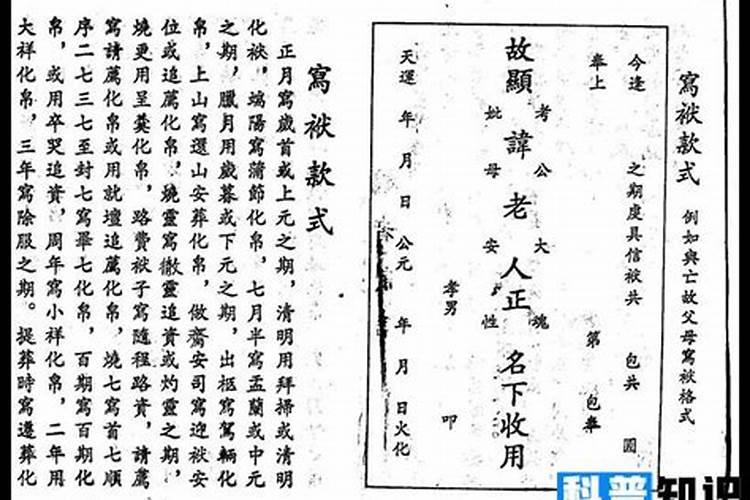 寫袱款式 例如與亡故父母寫袱格式
今逢 之期虔具信袱共 包共 圓
奉上 第 包奉
考 公 大 魂
故顯 諱 老 人正 名下收用
妣 母 安 性
孝男 叩
天運 年 月 日 公元 年 月 日火化
寫袱款式
正月寫歲首或上元之期，清明用拜掃或清明
化袱，端陽寫蒲節化帛，七月半寫盂蘭或中元
之期，臘月用歲暮或下元之期，出柩寫駕輛化
帛，上山寫選山安葬化帛，做齋安司寫迎袱安
位或追薦化帛，燒靈寫徹靈追資或灼靈之期，
燒更用呈羹化帛，路費袱子寫隨程路資，請薦
寫請薦化帛或用就壇追薦化帛，燒七寫首七順
序二七三七至封七寫畢七化帛，百期寫百期化
帛，或用卒哭追資，周年寫小祥化帛，二年用
大祥化帛，三年寫除服之期。提葬時寫遷葬化
科普知识